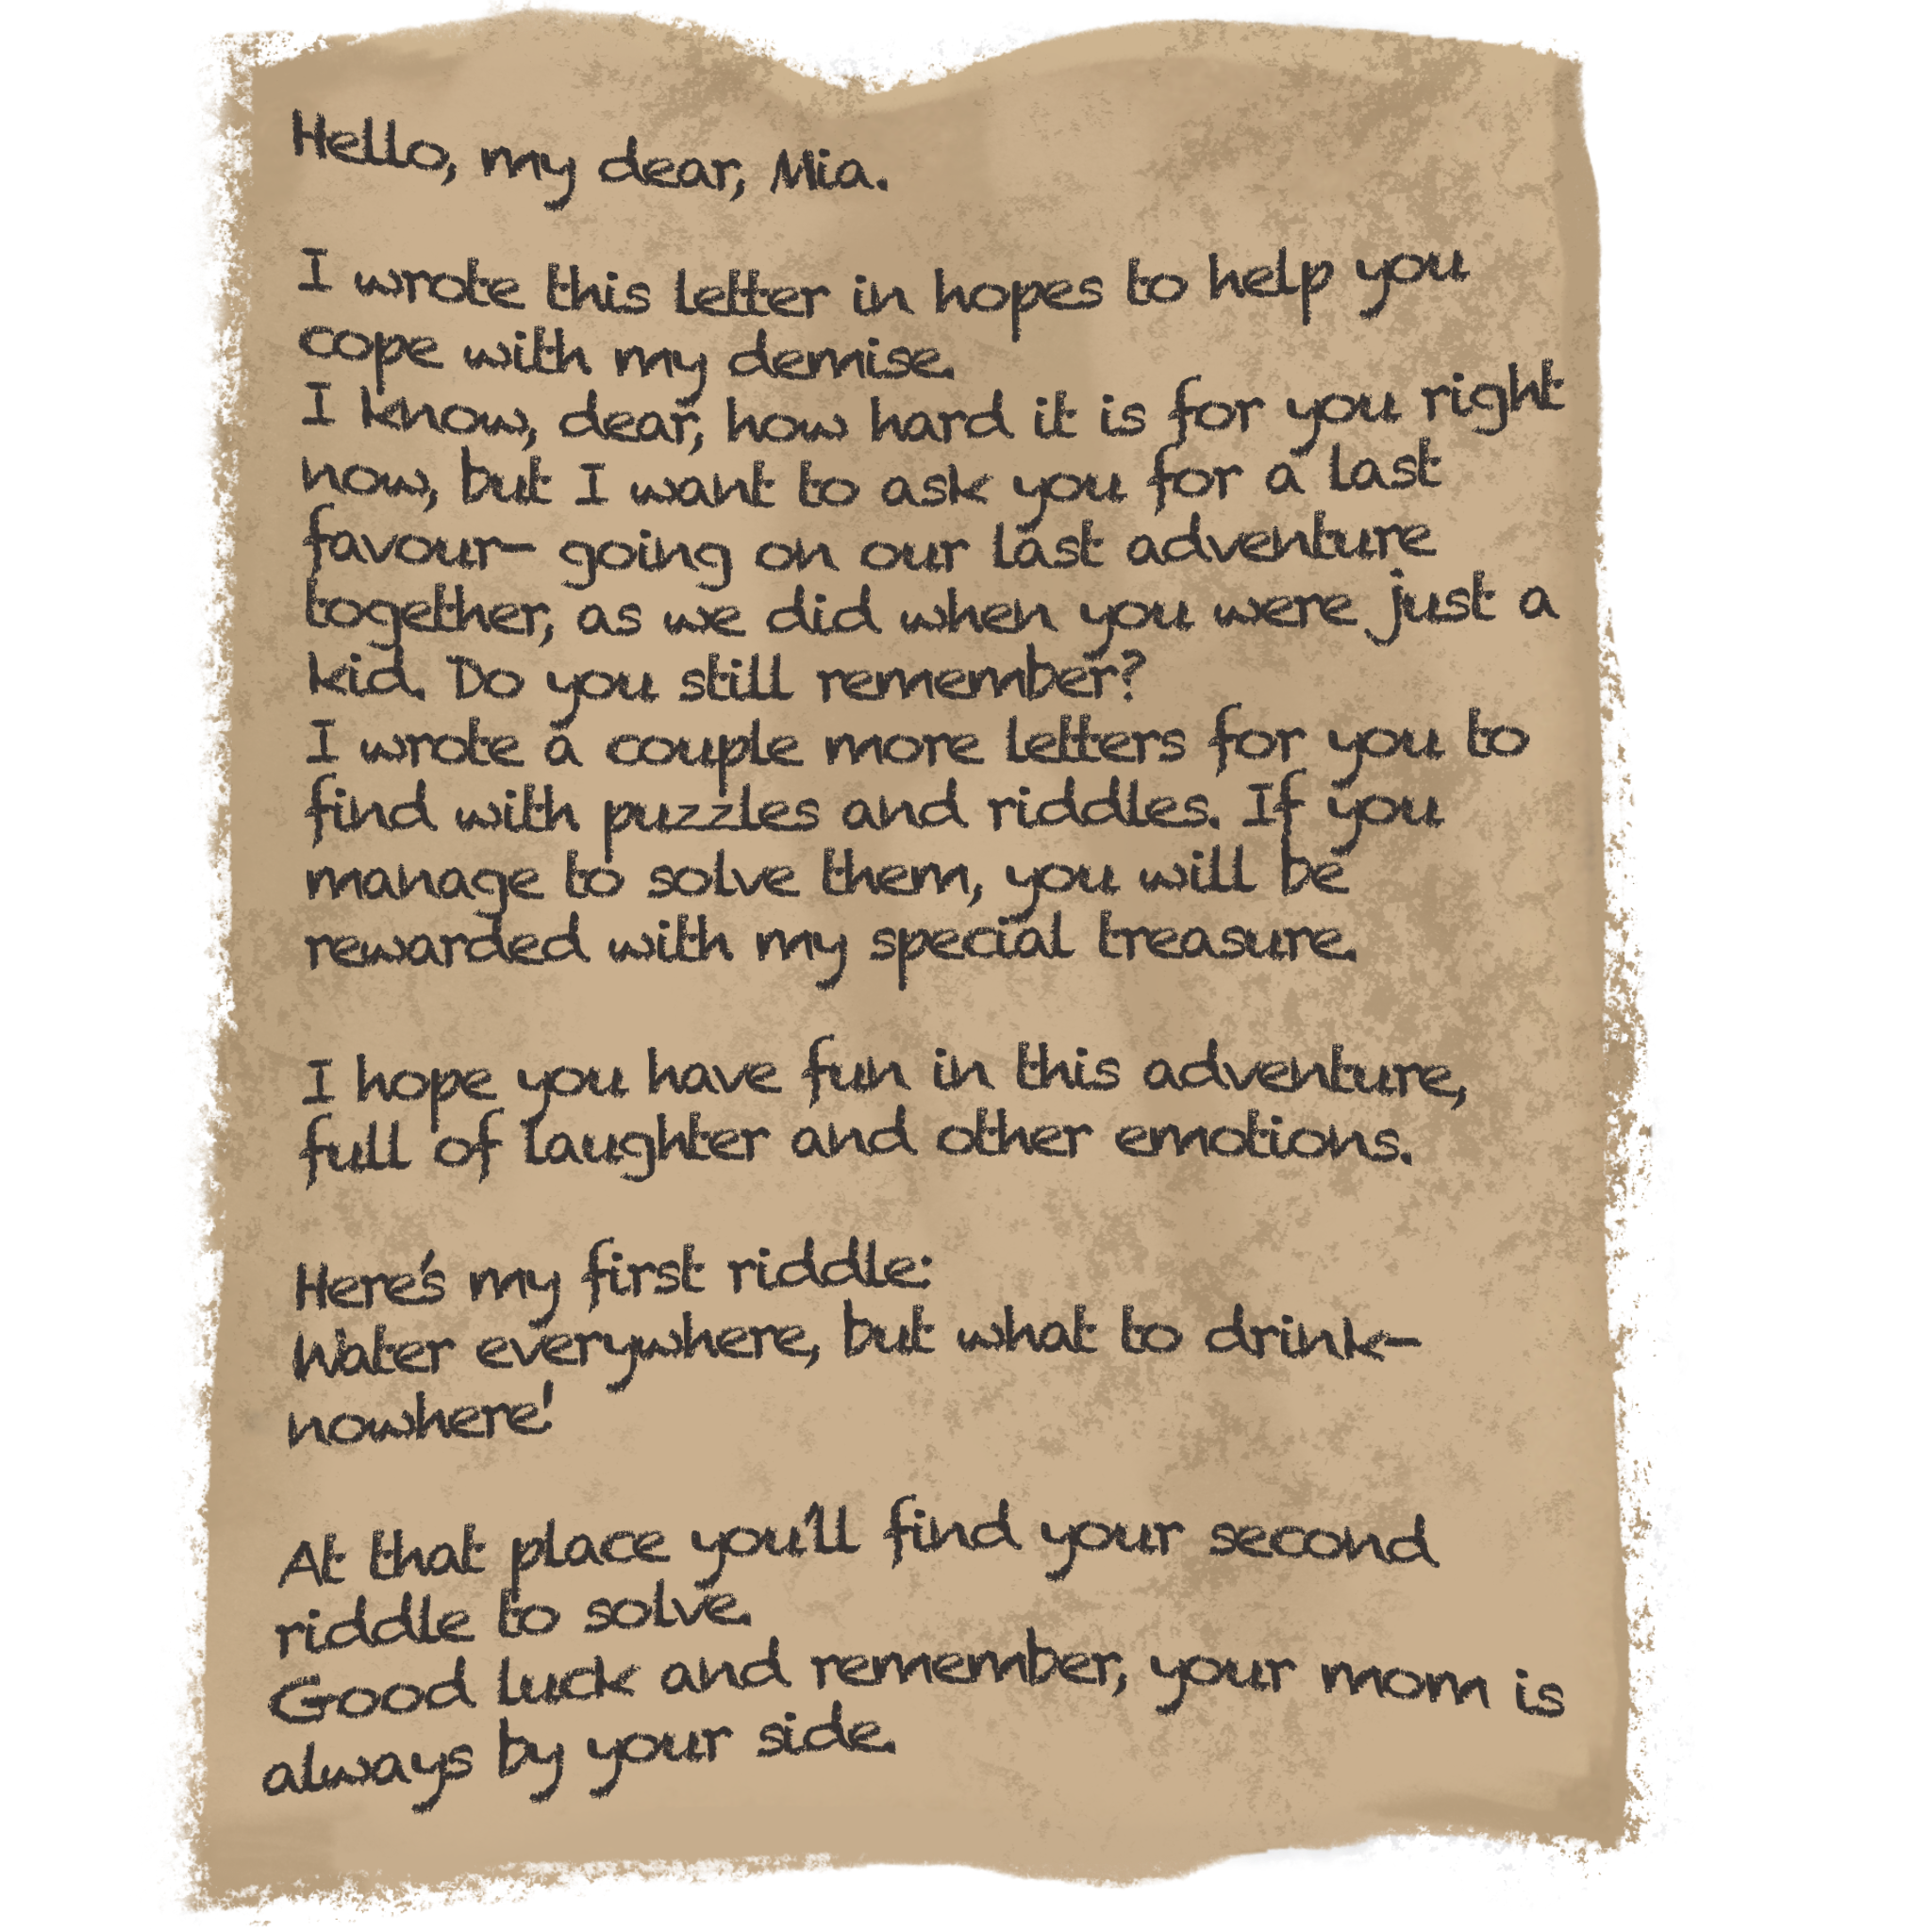 Hello, my dear, Mia.
I wrote this letter in hopes to help you
cope with my demise.
I know, dear, how hard it is for you right
now, but I want to ask you for a last
favour- going on our last adventure
together, as we did when you were just a
kid. Do you still remember?
I wrote a couple more letters for you to
find with puzzles and riddles. If you
manage to solve them, you will be
rewarded with my special treasure.
I hope you have fun in this adventure,
full of laughter and other emotions.
Here's my first riddle:
Water everywhere, but what to drink-
nowhere!
At that place you'll find your second
riddle to solve.
Good luck and remember, your mom is
always by your side.